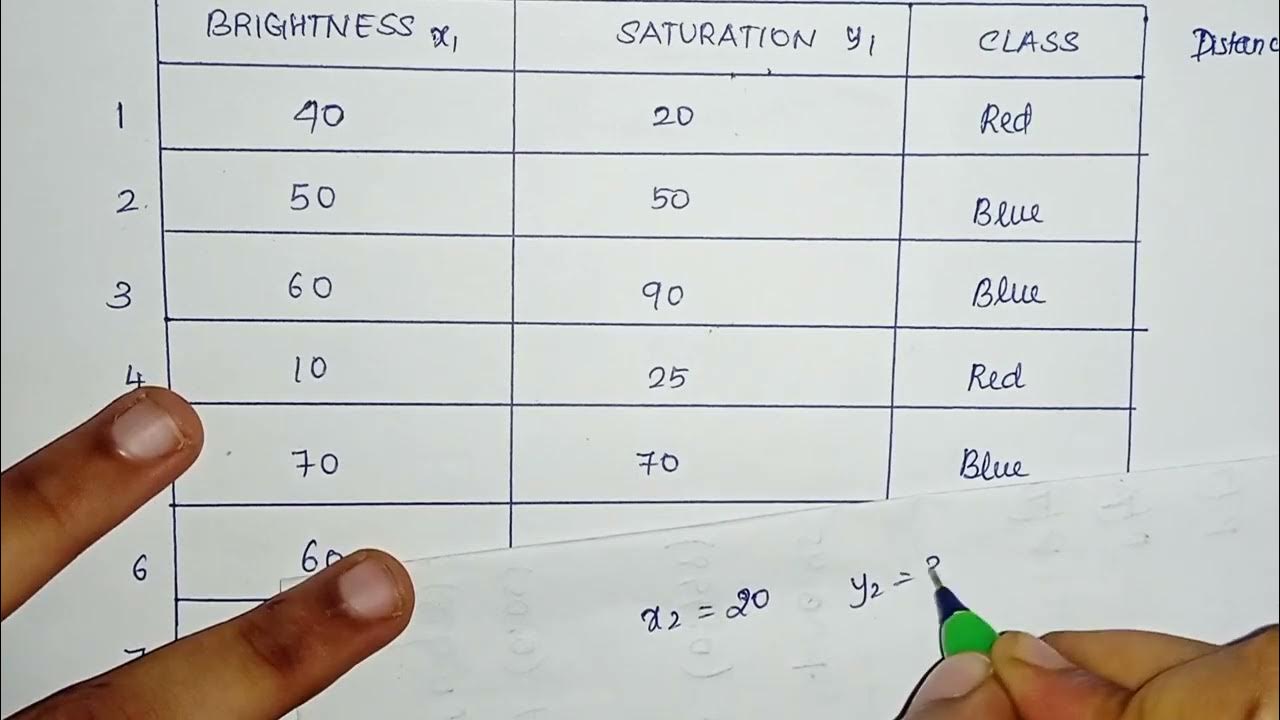 BRIGHTNESS x₁ SATURATION y₁ CLASS
1 40 20 Red
2. 50 50 Blue
3 60 90 Blue
4 10 25 Red
70 70 Blue
6 60
x₂ = 20 y₂ =